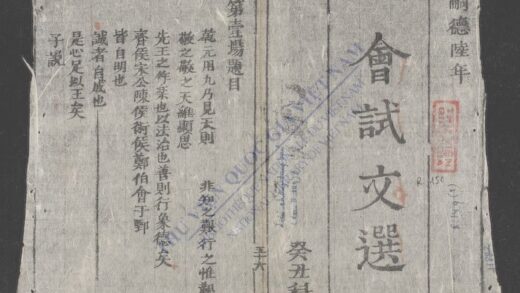 嗣德陸年
會試文選
R.150
癸丑科
第壹場題目
乾元用九乃見天則 非知之艱行之惟艱
敬之敬之天維顯思
先王之作樂也以法治也善則行象德矣
齊侯宋公陳侯衛侯鄭伯會于鄄
皆自明也
誠者自成也
是心足以王矣
子說
THƯ VIỆN QUỐC GIA VIỆT NAM